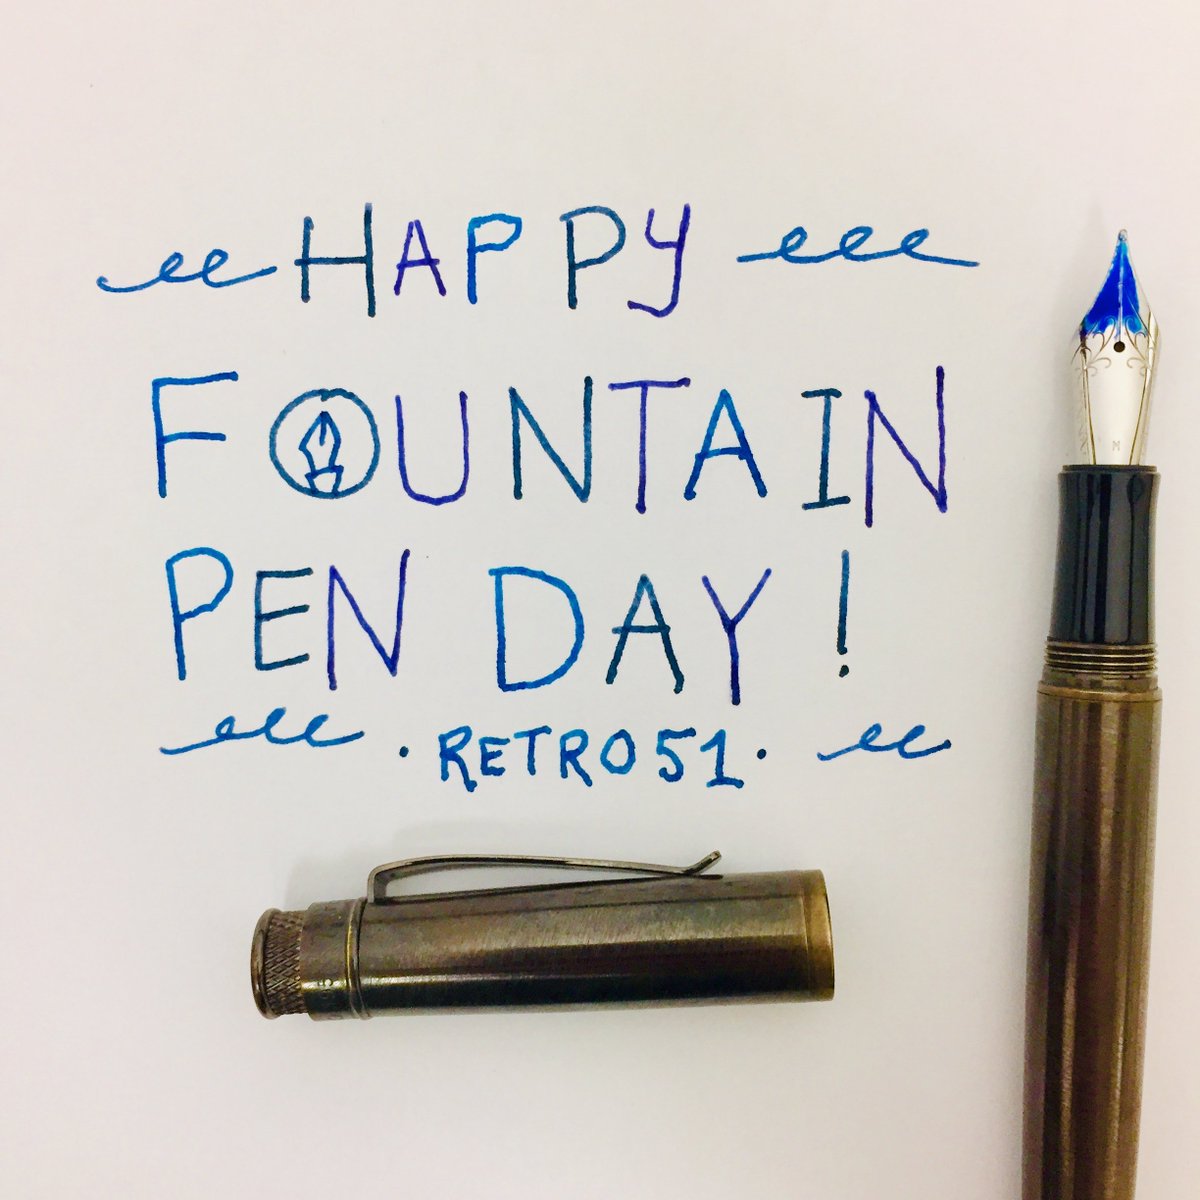 HAPPY
FOUNTAIN
PEN DAY!
· RETRO51 ·
M